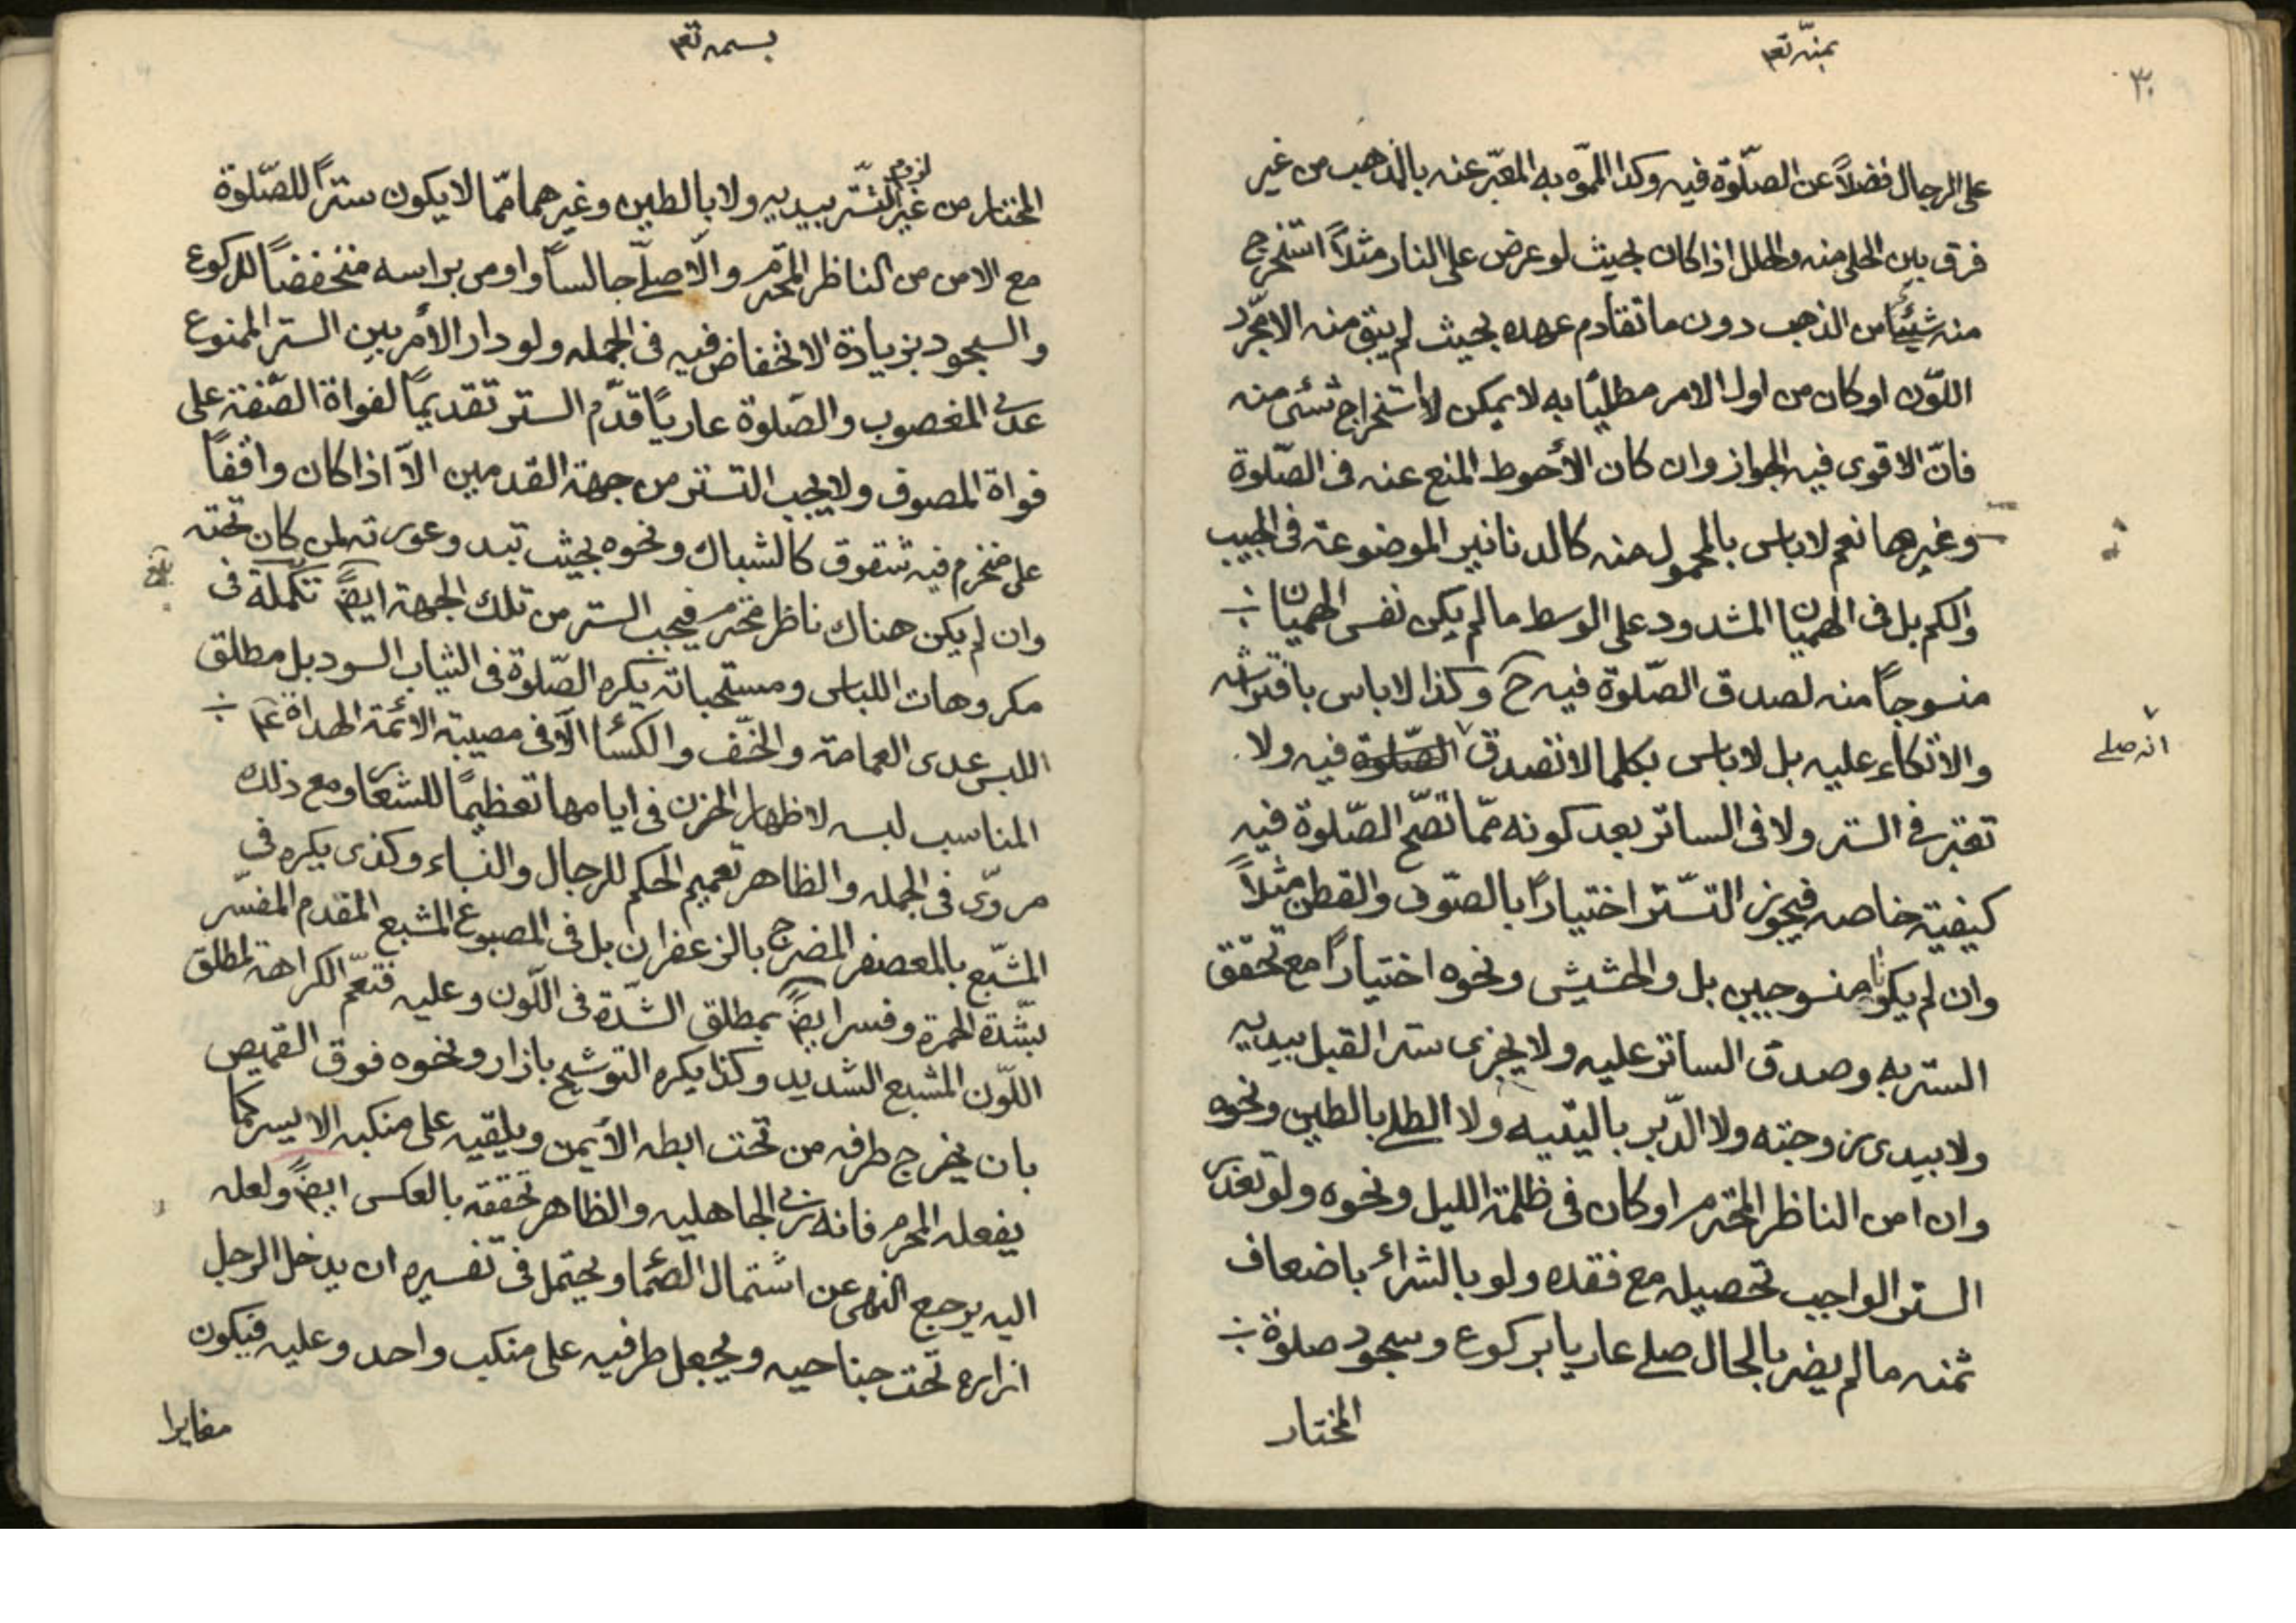 بمنّه تعم
٣٠
على الرجال فضلاً عن الصلّوة فيه وكذا المموّه به المعبّر عنه بالمذهب من غير
فرق بين الحلى منه والحلل اذا كان بحيث لو عرض على النار مثلاً استخرج
منه شيئا من الذهب دون ما تقادم عهده بحيث لم يبق منه الا مجرّد
اللّون او كان من اول الامر مطليّا به لا يمكن لاستخراج شئ منه
فانّ الاقوى فيه الجواز وان كان الأحوط المنع عنه فى الصّلوة
وغيرها نعم لا باس بالمحمول منه كالدنانير الموضوعة فى الجيب
والكم بل فى الهميان المشدود على الوسط ما لم يكن نفس الهميان
منسوجاً منه لصدق الصّلوة فيه ح وكذا لا باس بافتراشه
والاتكاء عليه بل لا باس بكلما لا تصدق الصّلوة فيه ولا
انه صلى
تعتبر فى الستر ولا فى الساتر بعد كونه ممّا تصّح الصّلوة فيه
كيفيّة خاصه فيجوز التسّتر اختياراً بالصّوف والقطن مثلاً
وان لم يكونا منسوجين بل والحشيش ونحوه اختياراً مع تحقق
الستر به وصدق الساتر عليه ولا يجزى ستر القبل بيديه
ولا بيدى زوجته ولا الدّبر باليتيه ولا الطلى بالطين ونحوه
وان امن الناظر المحترم او كان فى ظلمة الليل ونحوه ولو تعذر
الستر الواجب تحصيله مع فقده ولو بالشراء باضعاف
ثمنه ما لم يضر بالحال صلى عاريا بركوع وسجود صلوة
المختار
بسمه تعم
المختار من غير لزوم التسّتر بيديه ولا بالطين وغيرهما ممّا لا يكون ستراً للصّلوة
مع الامن من الناظر المحترم والّا صلّى جالساً واومى براسه منخفضاً للركوع
والسجود بزيادة الانخفاض فيه فى الجمله ولو دار الأمر بين الستر الممنوع
عدى المغصوب والصّلوة عارياً قدّم الستر تقديماً لفواة الصّفة على
فواة الموصوف ولا يجب التستر من جهة القدمين الّا اذا كان واقفاً
على مخرم فيه شقوق كالشباك ونحوه بحيث تبدو عورته لمن كان تحته
وان لم يكن هناك ناظر محترم فيجب الستر من تلك الجهة ايضً تكملة فى
مكروهات اللباس ومستحباته يكره الصّلوة فى الثياب السود بل مطلق
اللبس عدى العمامة والخّف والكسا الّا فى مصيبة الائمة الهداة ع
المناسب لبسه لاظهار الحزن فى ايامها تعظيماً للشعار ومع ذلك
مروىّ فى الجمله والظاهر تعميم الحكم للرجال والنساء وكذى يكره فى
المشّبع بالمعصفر المضرج بالزعفران بل فى المصبوغ المشبع المقدم المفسّر
بشّدة الحمرة وفسر ايضً بمطلق الشّدة فى اللّون وعليه فتعمّ الكراهة لمطلق
اللّون المشبع الشديد وكذا يكره التوشيح بازار ونحوه فوق القميص
بان يخرج طرفه من تحت ابطه الأيمن ويلقيه على منكبه الايسر كما
يفعله المحرم فانه زى الجاهليه والظاهر تحققه بالعكس ايضً ولعله
اليه يرجع النهى عن اشتمال الصّما ويحتمل فى تفسيره ان يدخل الرجل
ازاره تحت جناحيه ويجعل طرفيه على منكب واحد وعليه فيكون
مغايرا